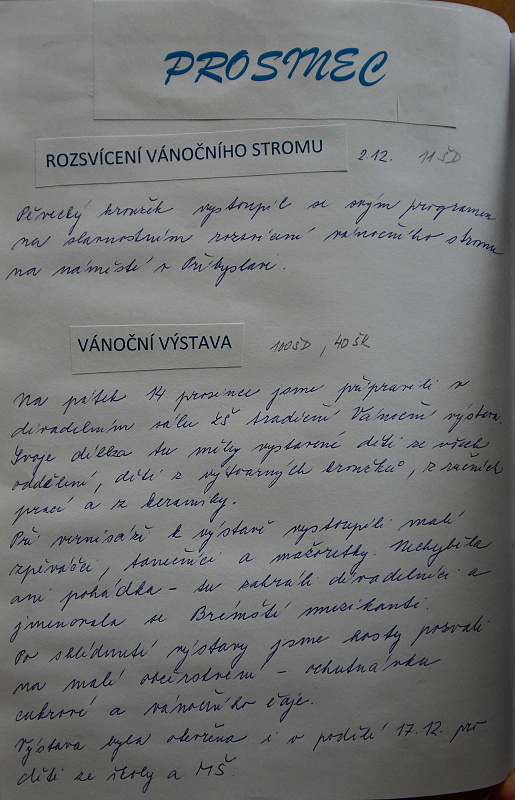 PROSINEC
ROZSVÍCENÍ VÁNOČNÍHO STROMU 2.12. 11 ŠD
Pěvecký kroužek vystoupil se svým programem
na slavnostním rozsvícení vánočního stromu
na náměstí v Přibyslavi.
VÁNOČNÍ VÝSTAVA 100 ŠD, 40 ŠK
Na pátek 14 prosince jsme připravili v
divadelním sálu ZŠ tradiční Vánoční výstavu.
Svoje dílka tu měly vystavené děti ze všech
oddělení, děti z výtvarných kroužků, z ručních
prací a z keramiky.
Při vernisáži k výstavě vystoupili malí
zpěváčci, tanečníci a mažoretky. Nechyběla
ani pohádka – tu zahráli divadelníci a
jmenovala se Brémští muzikanti.
Po shlédnutí výstavy jsme hosty pozvali
na malé občerstvení – ochutnávku
cukroví a vánočního čaje.
Výstava byla otevřena i v pondělí 17.12. pro
děti ze školy a MŠ.